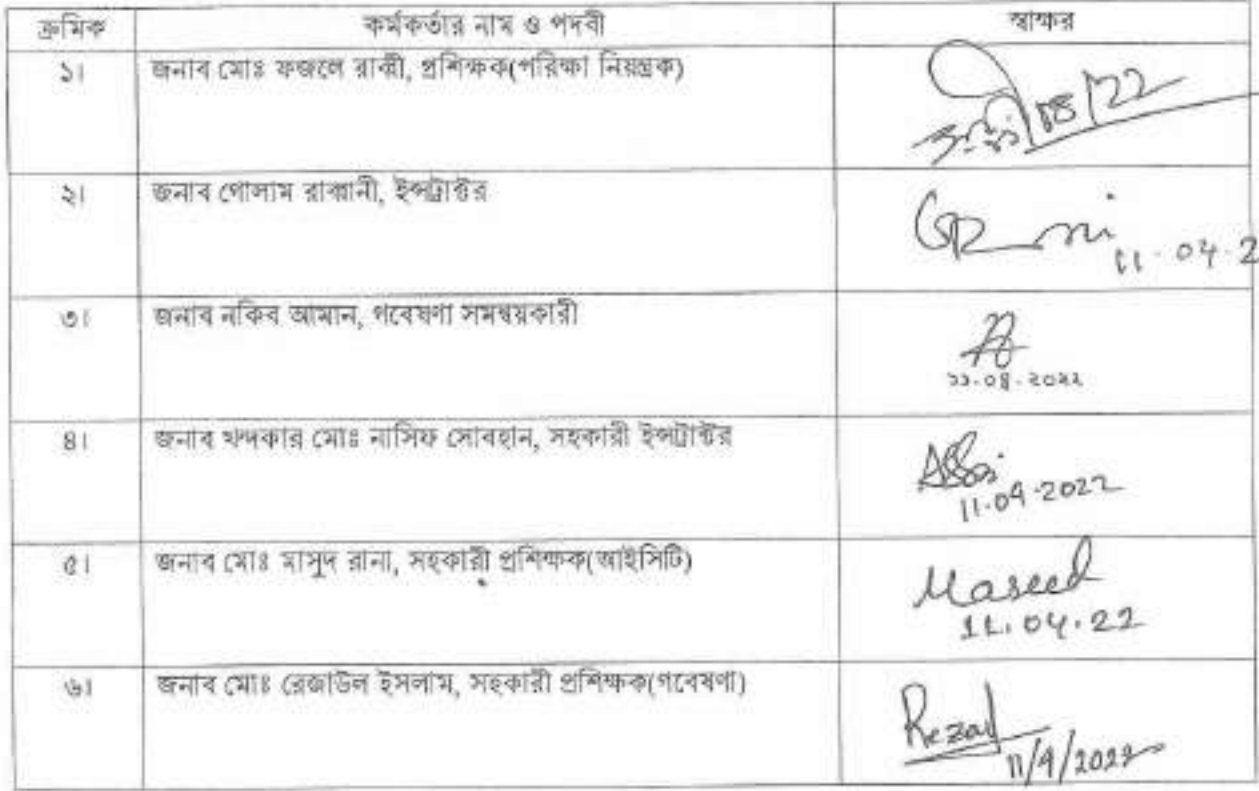 ক্রমিক কর্মকর্তার নাম ও পদবী স্বাক্ষর
১। জনাব মোঃ ফজলে রাব্বী, প্রশিক্ষক(পরিক্ষা নিয়ন্ত্রক)
২। জনাব গোলাম রাব্বানী, ইন্সট্রাক্টর
11.04.2
৩। জনাব নকিব আমান, গবেষণা সমন্বয়কারী
১১.০৪.২০২২
৪। জনাব খন্দকার মোঃ নাসিফ সোবহান, সহকারী ইন্সট্রাক্টর
11.04.2022
৫। জনাব মোঃ মাসুদ রানা, সহকারী প্রশিক্ষক(আইসিটি)
Masud
11.04.22
৬। জনাব মোঃ রেজাউল ইসলাম, সহকারী প্রশিক্ষক(গবেষণা)
Rezaul
11/4/2022